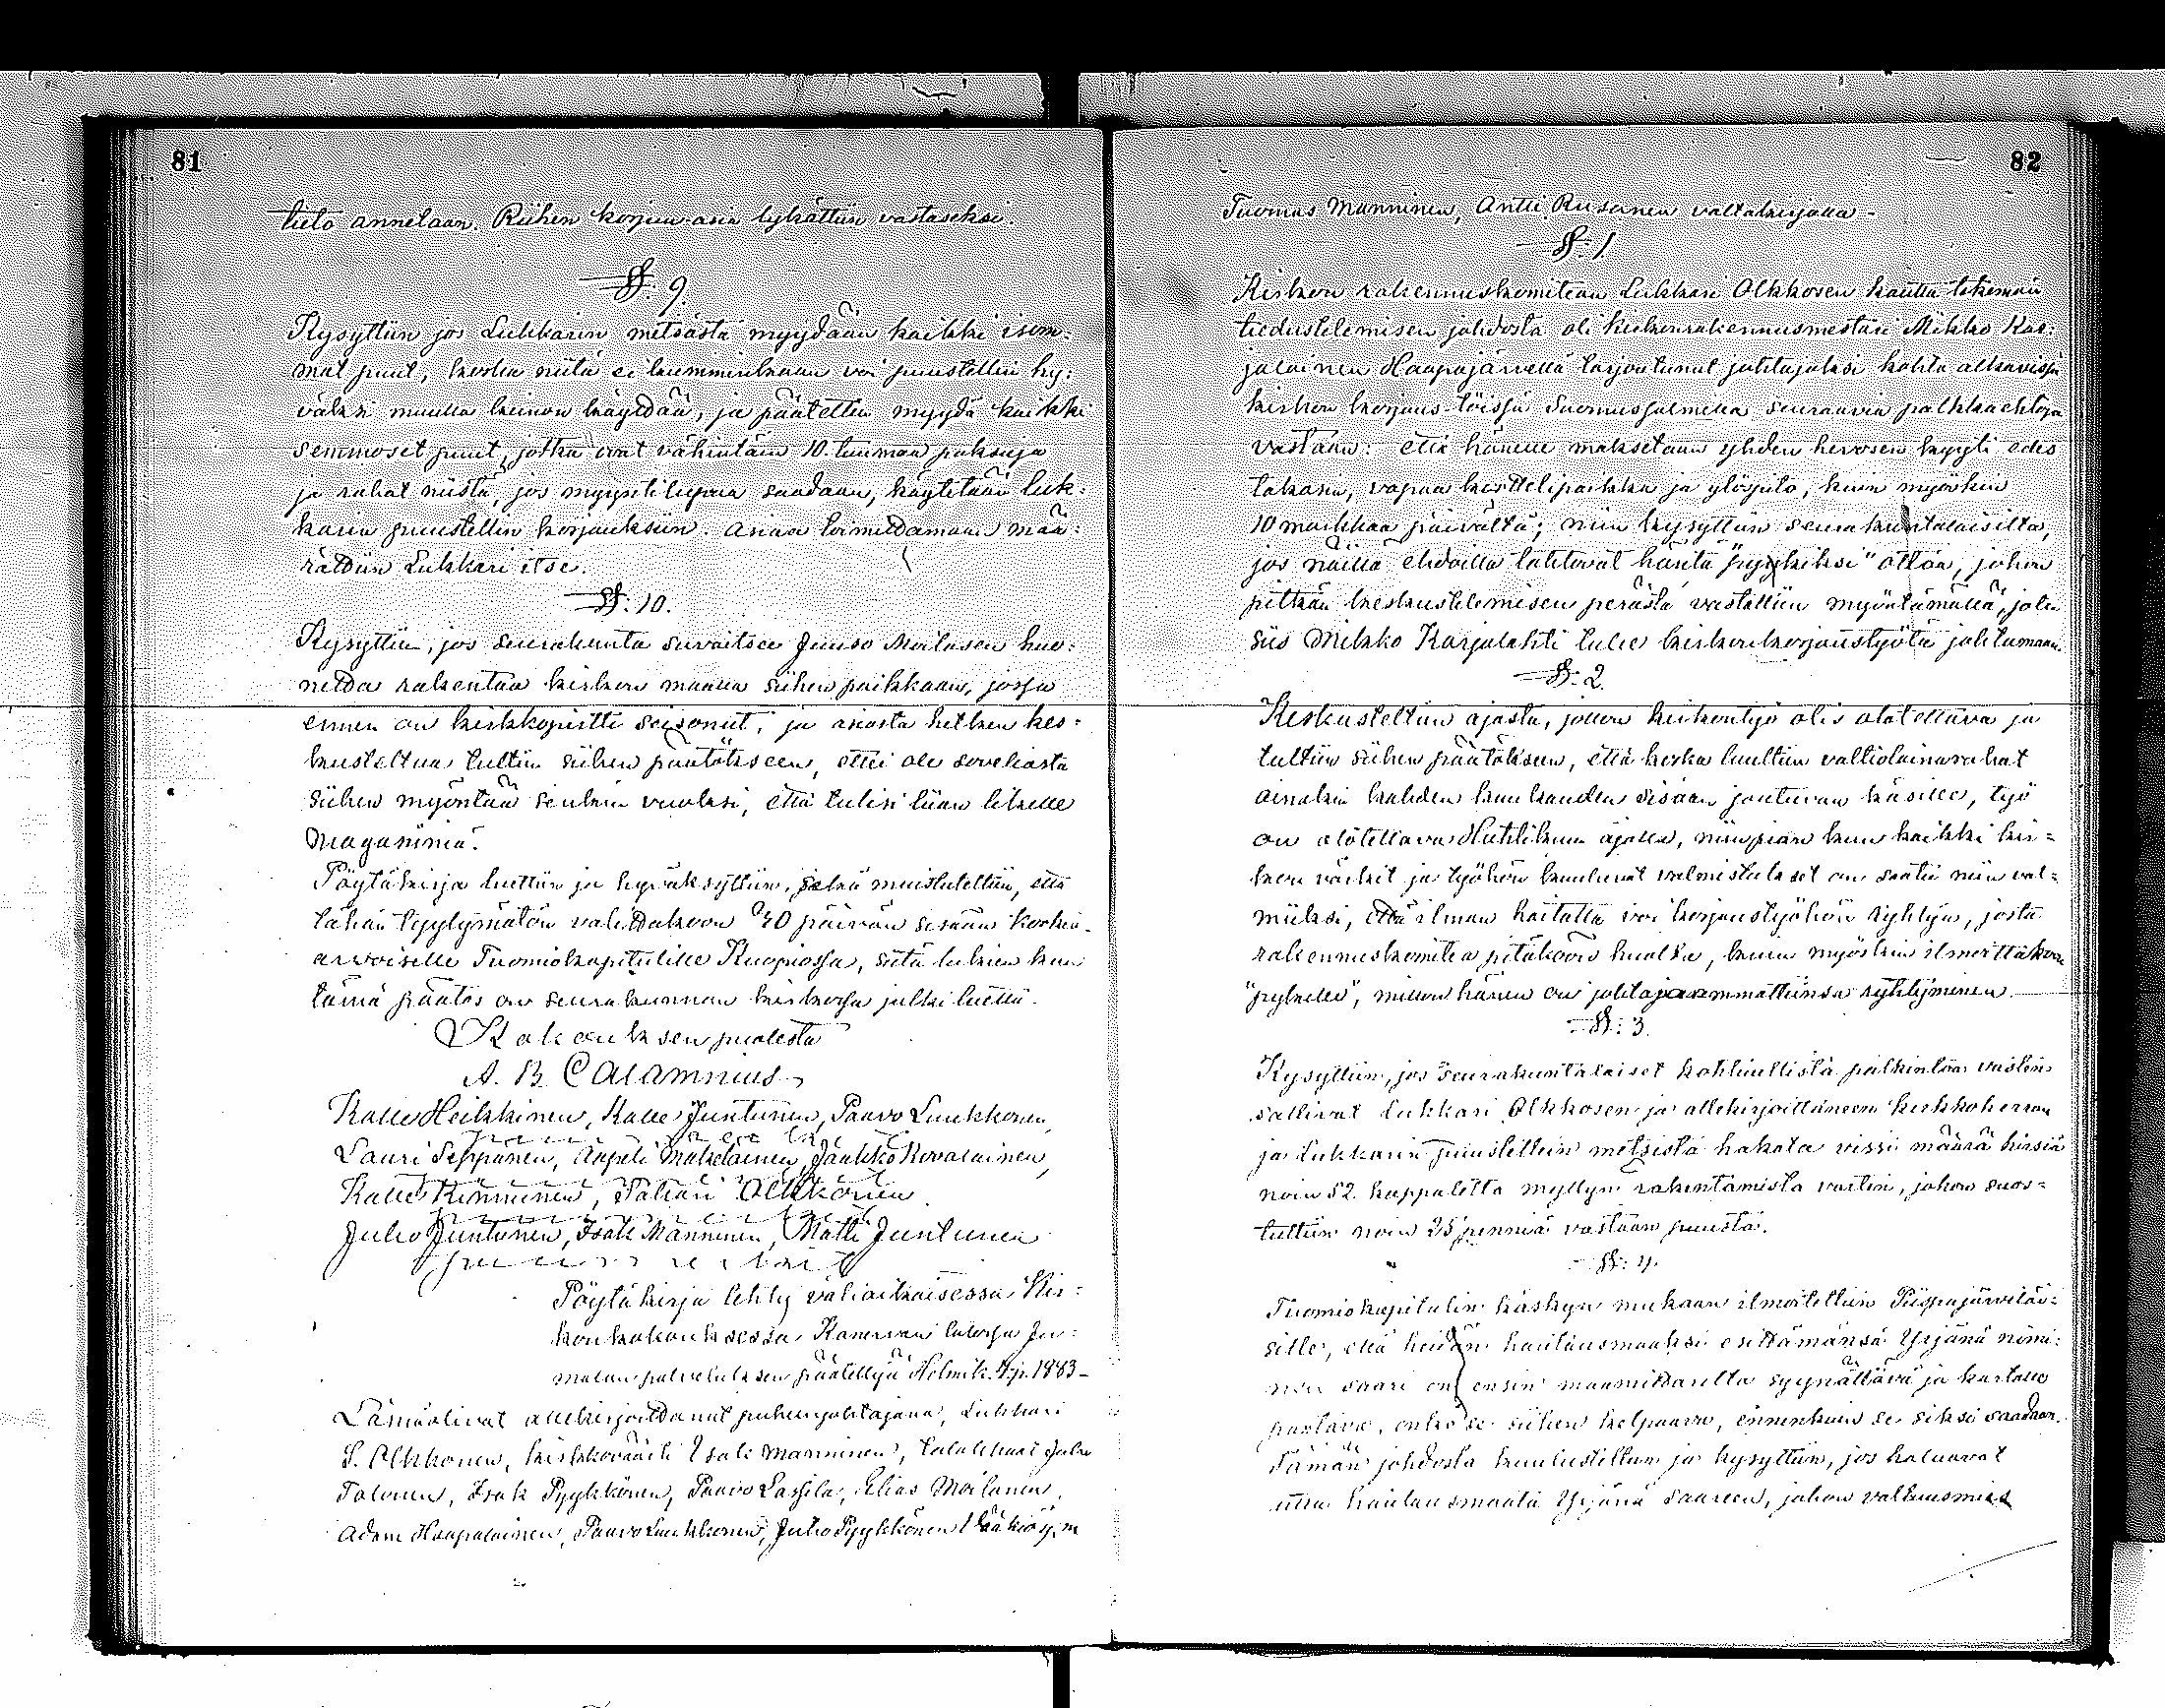 81
tieto annetaan. Riihen korjuu-asia lykättiin vastaseksi.
§. 9.
Kysyttiin jos Lukkarin metsästä myydään kaikki isom-
mat puut, koska niitä ei kumminkaan voi puustellin hy-
väksi muulla keinon käyttää, ja päätettiin myydä kaikki
semmoset puut, jotka ovat vähintäin 10. tuuman paksuja
ja rahat niistä, jos myyntilupaa saadaan, käytetään luk-
karin puustellin korjauksiin. Asiaa toimittamaan mää-
rättiin Lukkari itse.
§. 10.
Kysyttiin, jos seurakunta suvaitsee Juuso Moilasen huo-
netta rakentaa kirkon maalla siihen paikkaan, jossa
ennen on kirkkopirtti seisonut, ja asiasta hetken kes-
kusteltua tultiin siihen päätökseen, ettei ole soveliasta
siihen myöntää senkin vuoksi, että tulisi liian likelle
magasiiniä.
Pöytäkirja luettiin ja hyväksyttiin, sekä muistutettiin, että
tähän tyytymätön valittakoon 30 päivän sisään korkia-
arvoiselle Tuomiokapitulille Kuopiossa, siitä lukein kun
tämä päätös on seurakunnan kirkossa julki luettu.
Kokouksen puolesta
A. B. Calamnius
Kalle Heikkinen, Kalle Juntunen, Paavo Luukkonen,
Lauri Seppänen, Aapeli Mäkeläinen, Jaakko Kovalainen,
Kalle Kinnunen, Taheri Olkkonen
Juho Juntunen, Isak Manninen, Matti Juntunen
Pöytäkirja tehty väliaikaisessa Kir-
konkokouksessa Kanervan talossa Ju-
malan palveluksen päätettyä Helmik. 4 p. 1883 -
Läsnäolivat allekirjoittanut puheenjohtajana, Lukkari
S. Olkkonen, kirkkoväärti Isak Manninen, talokkaat Juho
Talonen, Isak Pyykkönen, Paavo Lassila, Elias Moilanen,
Adam Haapalainen, Paavo Luukkonen, Juho Pyykkönen
82
Tuomas Manninen, Antti Rusanen valtakirjalla -
§. 1.
Kirkon rakennuskomitean Lukkari Olkkosen kautta tekemän
tiedustelemisen johdosta oli kirkonrakennusmestari Mikko Kar-
jalainen Haapajärveltä tarjoutunut johtajaksi kohta alkavissa
kirkon korjaus-töissä Suomussalmella seuraavia palkkaehtoja
vastaan: että hänelle maksetaan yhden hevosen kyyti edes
takasin, vapaa kortteliipaikka ja ylöspito, kuin myöskin
10 markkaa päivältä; niin kysyttiin seurakuntalaisilta,
jos näillä ehdoilla tahtovat häntä "pyykiksi" ottaa, johon
pitkän keskustelemisen perästä vastattiin myöntämällä, joten
siis Mikko Karjalahti tulee kirkonkorjaustyötä johtamaan.
§. 2.
Keskusteltiin ajasta, jolloin kirkontyö olis alotettava ja
tultiin siihen päätökseen, että koska luultiin valtiolainarahat
ainakin kahden kuukauden sisään joutuvan käsille, työ
on alotettava Huhtikuun ajalla, niinpian kun kaikki kir-
kon väkit ja työhön kuuluvat valmistukset on saatu niin val-
miiksi, että ilman haitatta voi korjaustyöhön ryhtyä, josta
rakennuskomitea pitäköön huolta, kuin myöskin ilmoittakoon
"pykille", milloin hänen on johtajaammattiinsa ryhtyminen.
§. 3.
Kysyttiin, jos seurakuntalaiset kohtuullista palkintoa vasten
sallivat Lukkari Olkkosen ja allekirjoittaneen kirkkoherran
ja Lukkarin puustellein metsistä hakata vissi määrä hirsiä
noin 52. kappaletta myllyn rakentamista varten, johon suos-
tuttiin noin 25 penniä vastaan puusta.
§. 4.
Tuomiokapitulin käskyn mukaan ilmotettiin Piispajärveläi-
sille, että heidän hautausmaaksi esittämänsä Yrjänä nimi-
nen saari on ensin maamittarilta syynättävä ja kartalle
pantava, onko se siihen kelpaava, ennenkuin se siksi saadaan.
Tämän johdosta kuulusteltiin ja kysyttiin, jos haluavat
ottaa hautausmaata Yrjänä saareen, johon valtuusmies